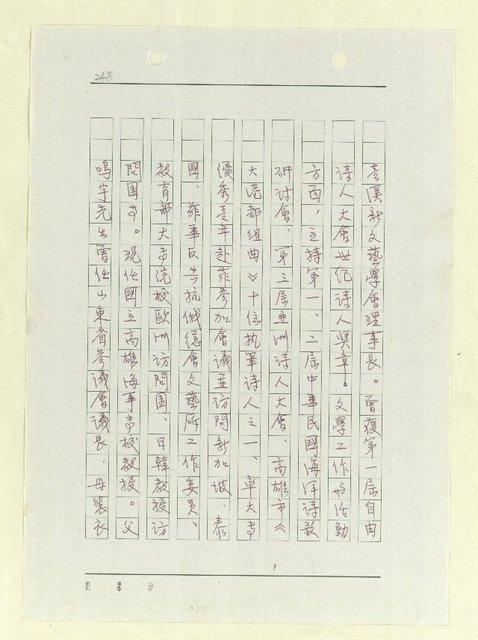 248.
芸漢新文藝學會理事長。曾獲第一屆自由
詩人大會世紀詩人獎章。文學工作與活動
方面，主持第一、二屆中華民國海洋詩歌
研討會、第三屆亞洲詩人大會、高雄市《
大港都組曲》十位執筆詩人之一、率大專
優秀青年赴菲參加會議並訪問新加坡、泰
國、菲華反共抗俄總會文藝厛工作委員、
教育部大专院校歐洲訪問團、日韓教授訪
問團等。現任國立高雄海事专校教授。父
鳴宇先生曾任山東省參議會議長、母裴衣
1